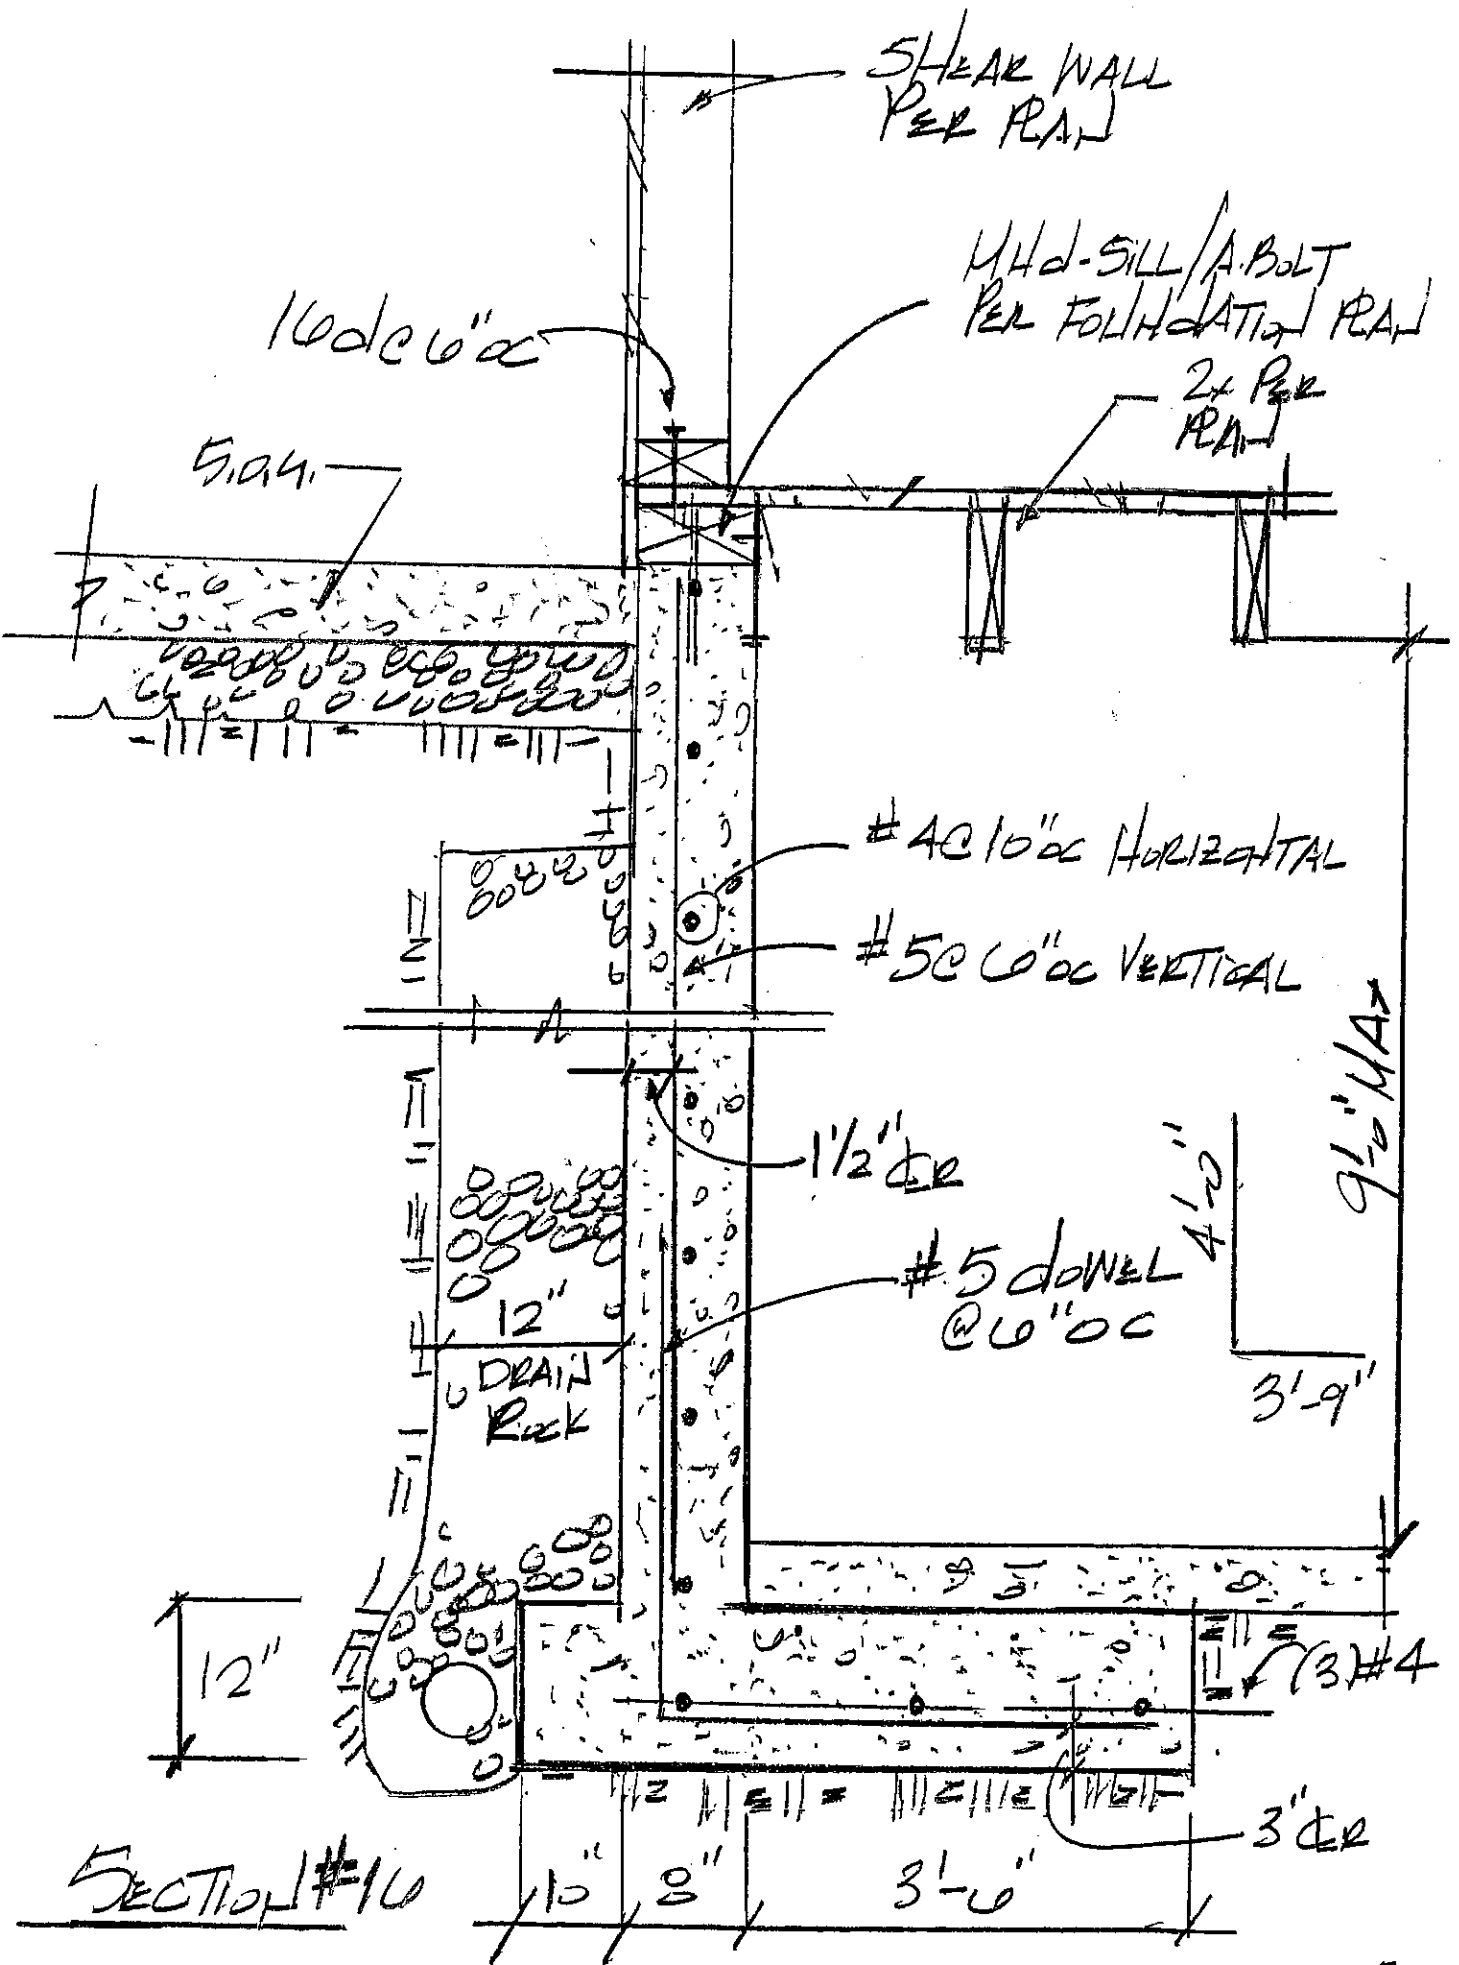 SHEAR WALL
PER PLAN
MUD-SILL/A.BOLT
PER FOUNDATION PLAN
2x PER
PLAN
16d @ 6" oc
S.O.G.
#4 @ 10" oc HORIZONTAL
#5 @ 6" oc VERTICAL
9'-6" MAX
1 1/2" CLR
4'-0"
#5 dOWEL
@ 6" OC
3'-9"
12"
DRAIN
Rock
12"
(3) #4
3" CLR
SECTION #16
10"
8"
3'-6"